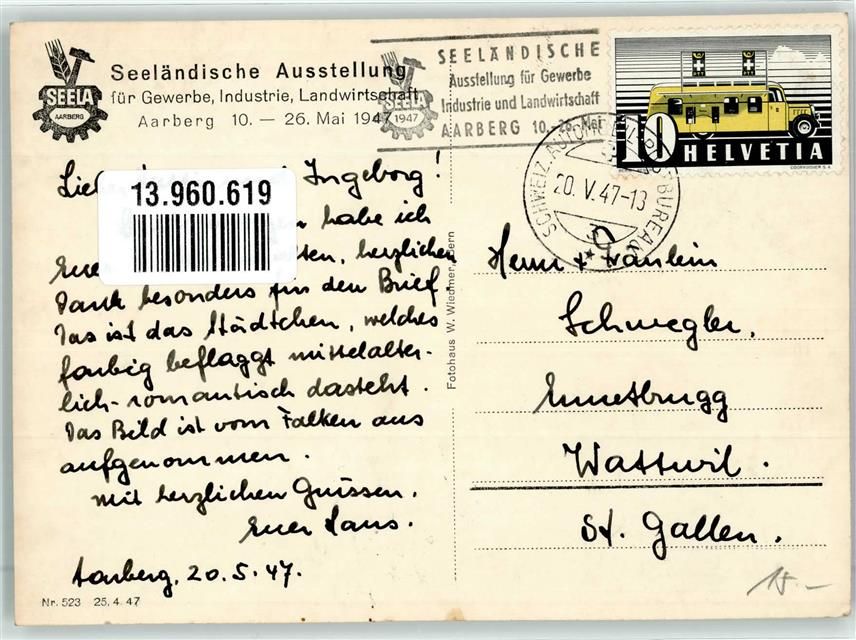 SEELA
AARBERG
Seeländische Ausstellung
für Gewerbe, Industrie, Landwirtschaft
Aarberg 10. — 26. Mai 1947
SEELA
1947
SEELÄNDISCHE
Ausstellung für Gewerbe
Industrie und Landwirtschaft
AARBERG 10.-26. Mai
10 HELVETIA
COURVOISIER S.A.
SCHWEIZ. AUTOMOBIL-POSTBUREAU
20. V. 47-13
3
13.960.619
Ingeborg!
habe ich
Euer herzlichen
Dank besonders für den Brief.
Das ist das Städtchen, welches
farbig beflaggt mittelalter-
lich-romantisch dasteht.
Das Bild ist vom Falken aus
aufgenommen.
Mit herzlichen Grüssen.
Euer Hans.
Aarberg, 20.5.47.
Nr. 523 25. 4. 47
Fotohaus W. Wiedmer,
Herrn & Fräulein
Schwegler.
Ennetbrugg
Wattwil.
St. Gallen.